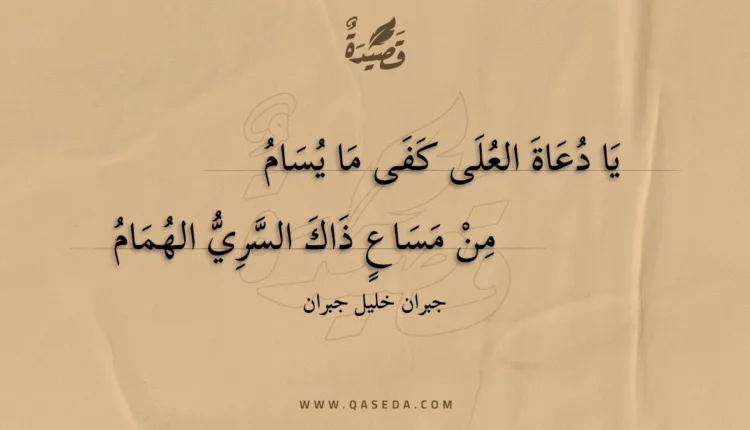 قَصِيدَةٌ
يَا دُعَاةَ العُلَى كَفَى مَا يُسَامُ
مِنْ مَسَاعٍ ذَاكَ السَّرِيُّ الهُمَامُ
جبران خليل جبران
WWW.QASEDA.COM